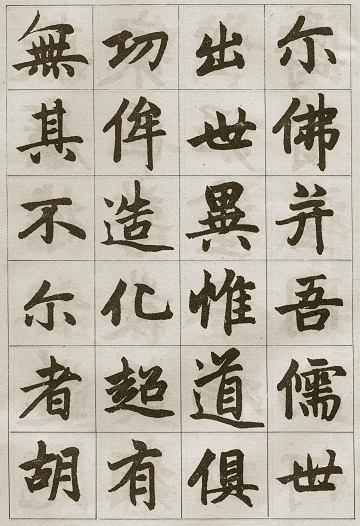 尔佛并吾儒世
出世異惟道俱
功侔造化超有
無其不尔者胡